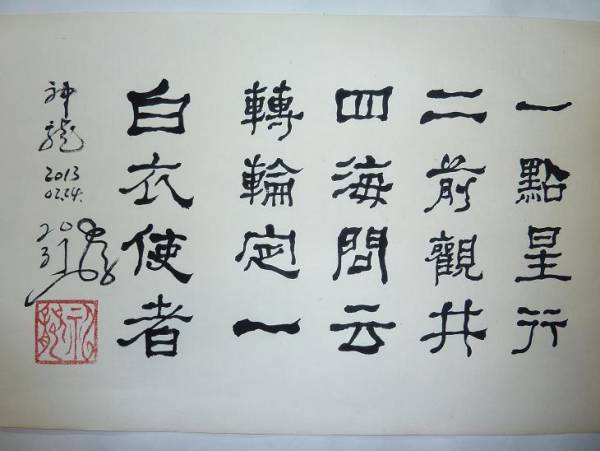 一點星行
二前觀井
四海問云
轉輪定一
白衣使者
神龍
2013
02.24.